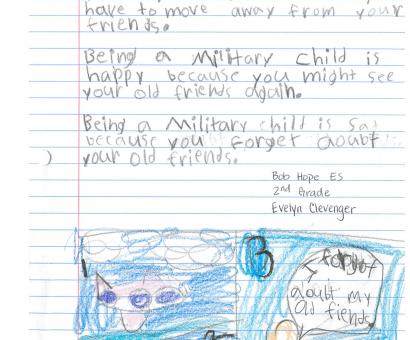 have to move away from your
friends.
Being a Military child is
happy because you might see
your old friends again.
Being a Military child is sad
because you forget aoubt
your old friends.
Bob Hope ES
2nd Grade
Evelyn Clevenger
1
3
I forgot
aoult my
old fiends